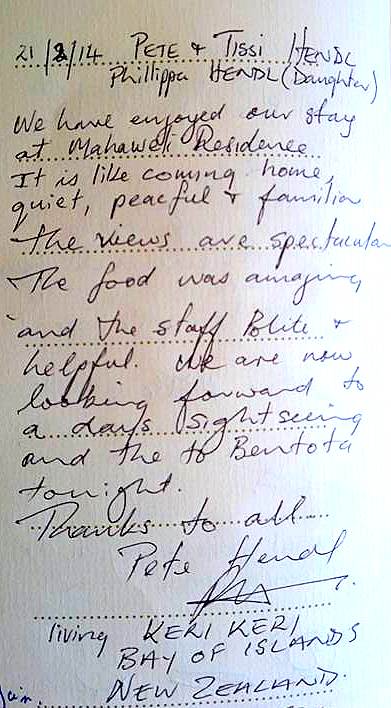 21/2/14 PETE & TISSI HENDL
Phillippa HENDL (Daughter)
We have enjoyed our stay
at Mahaweli Residence
It is like coming home,
quiet, peaceful & familiar
the views are spectacular
The food was amazing
and the staff Polite &
helpful. We are now
looking forward to
a days sightseeing
and the to Bentota
tonight.
Thanks to all...
Pete Hendl
living KERI KERI
BAY OF ISLANDS
NEW ZEALAND.